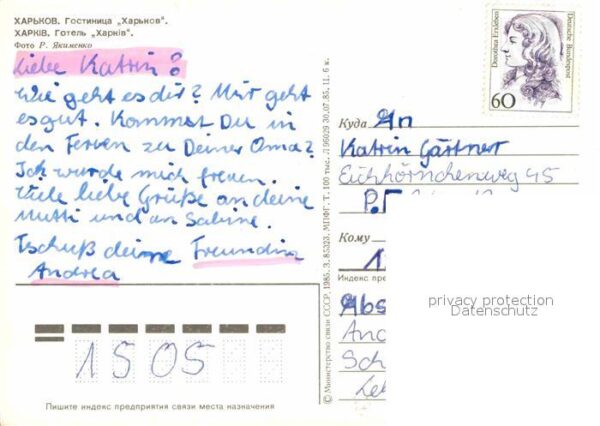 ХАРЬКОВ. Гостиница „Харьков".
ХАРКІВ. Готель „Харків".
Фото Р. Якименко
Liebe Katrin!
Wie geht es dir? Mir geht
es gut. Kommst Du in
den Ferien zu Deiner Oma?
Ich würde mich freuen.
Viele liebe Grüße an deine
Mutti und an Sabine.
Tschuß deine Freundin
Andrea
1505
Пишите индекс предприятия связи места назначения
© Министерство связи СССР, 1985. З. 85323. МПФГ. Т. 100 тыс. Л 96029 30.07.85. 11. 6 к.
Dorothea Erxleben
Deutsche Bundespost
60
Куда An
Katrin Gärtner
Eichhörnchenweg 45
Кому
1
Индекс пре
Abs
And
Sch
privacy protection
Datenschutz